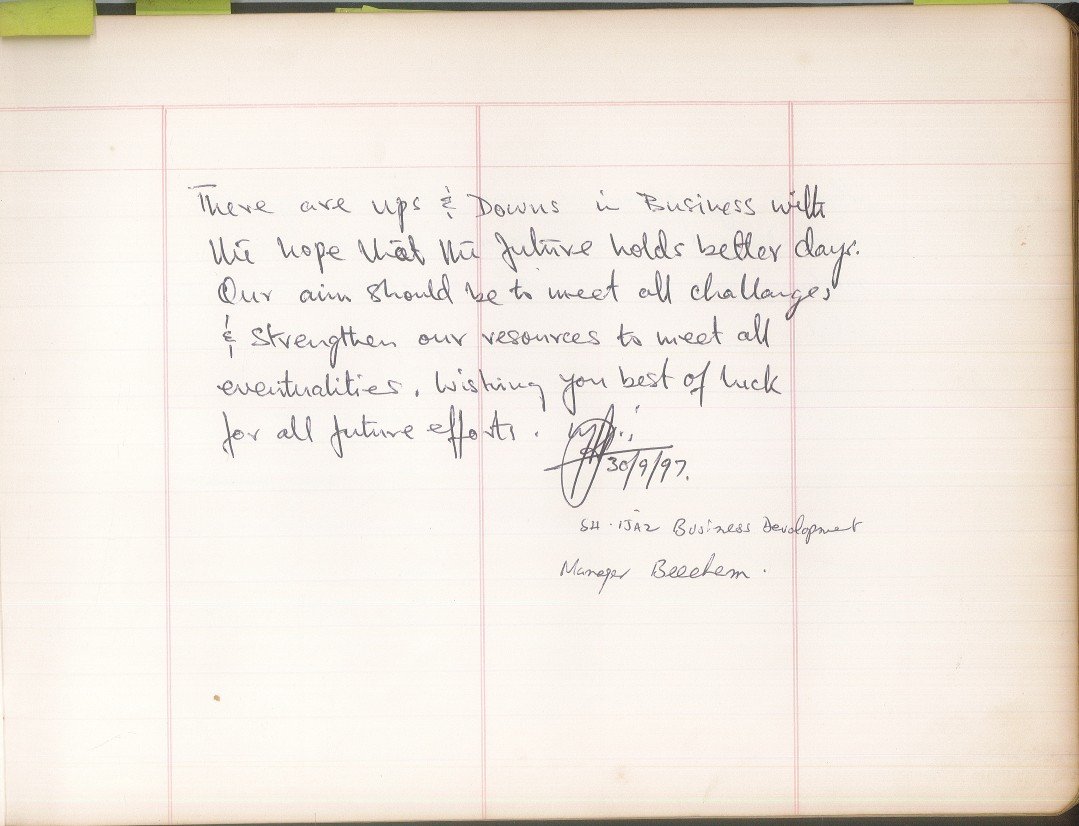 There are ups & Downs in Business with
the hope that the future holds better days.
Our aim should be to meet all challanges
& strengthen our resources to meet all
eventualities. Wishing you best of luck
for all future efforts.
30/9/97.
SH. IJAZ Business Development
Manager Beecham.